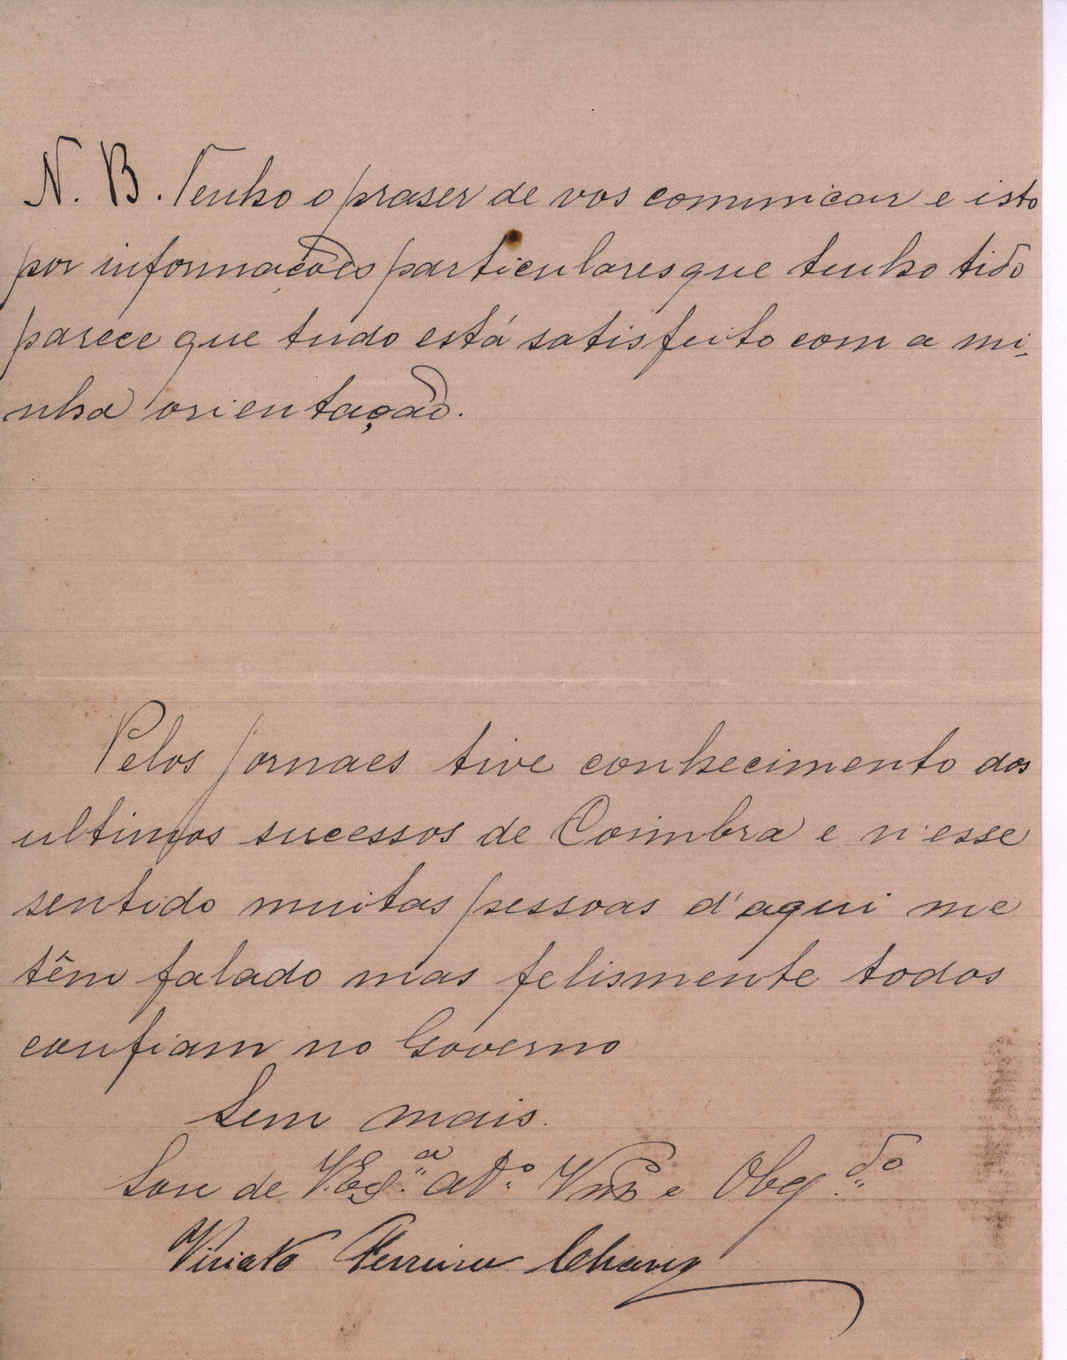 N. B. Tenho o praser de vos comunicar e isto
por informações particulares que tenho tido
parece que tudo está satisfeito com a mi-
nha orientação.
Pelos jornaes tive conhecimento dos
ultimos sucessos de Coimbra e n'esse
sentido muitas pessoas d'aqui me
têm falado mas felismente todos
confiam no Governo
Sem mais.
Sou de V. Ex.ª At.º Vnr e Obg.do
Viriato Ferreira Chaves